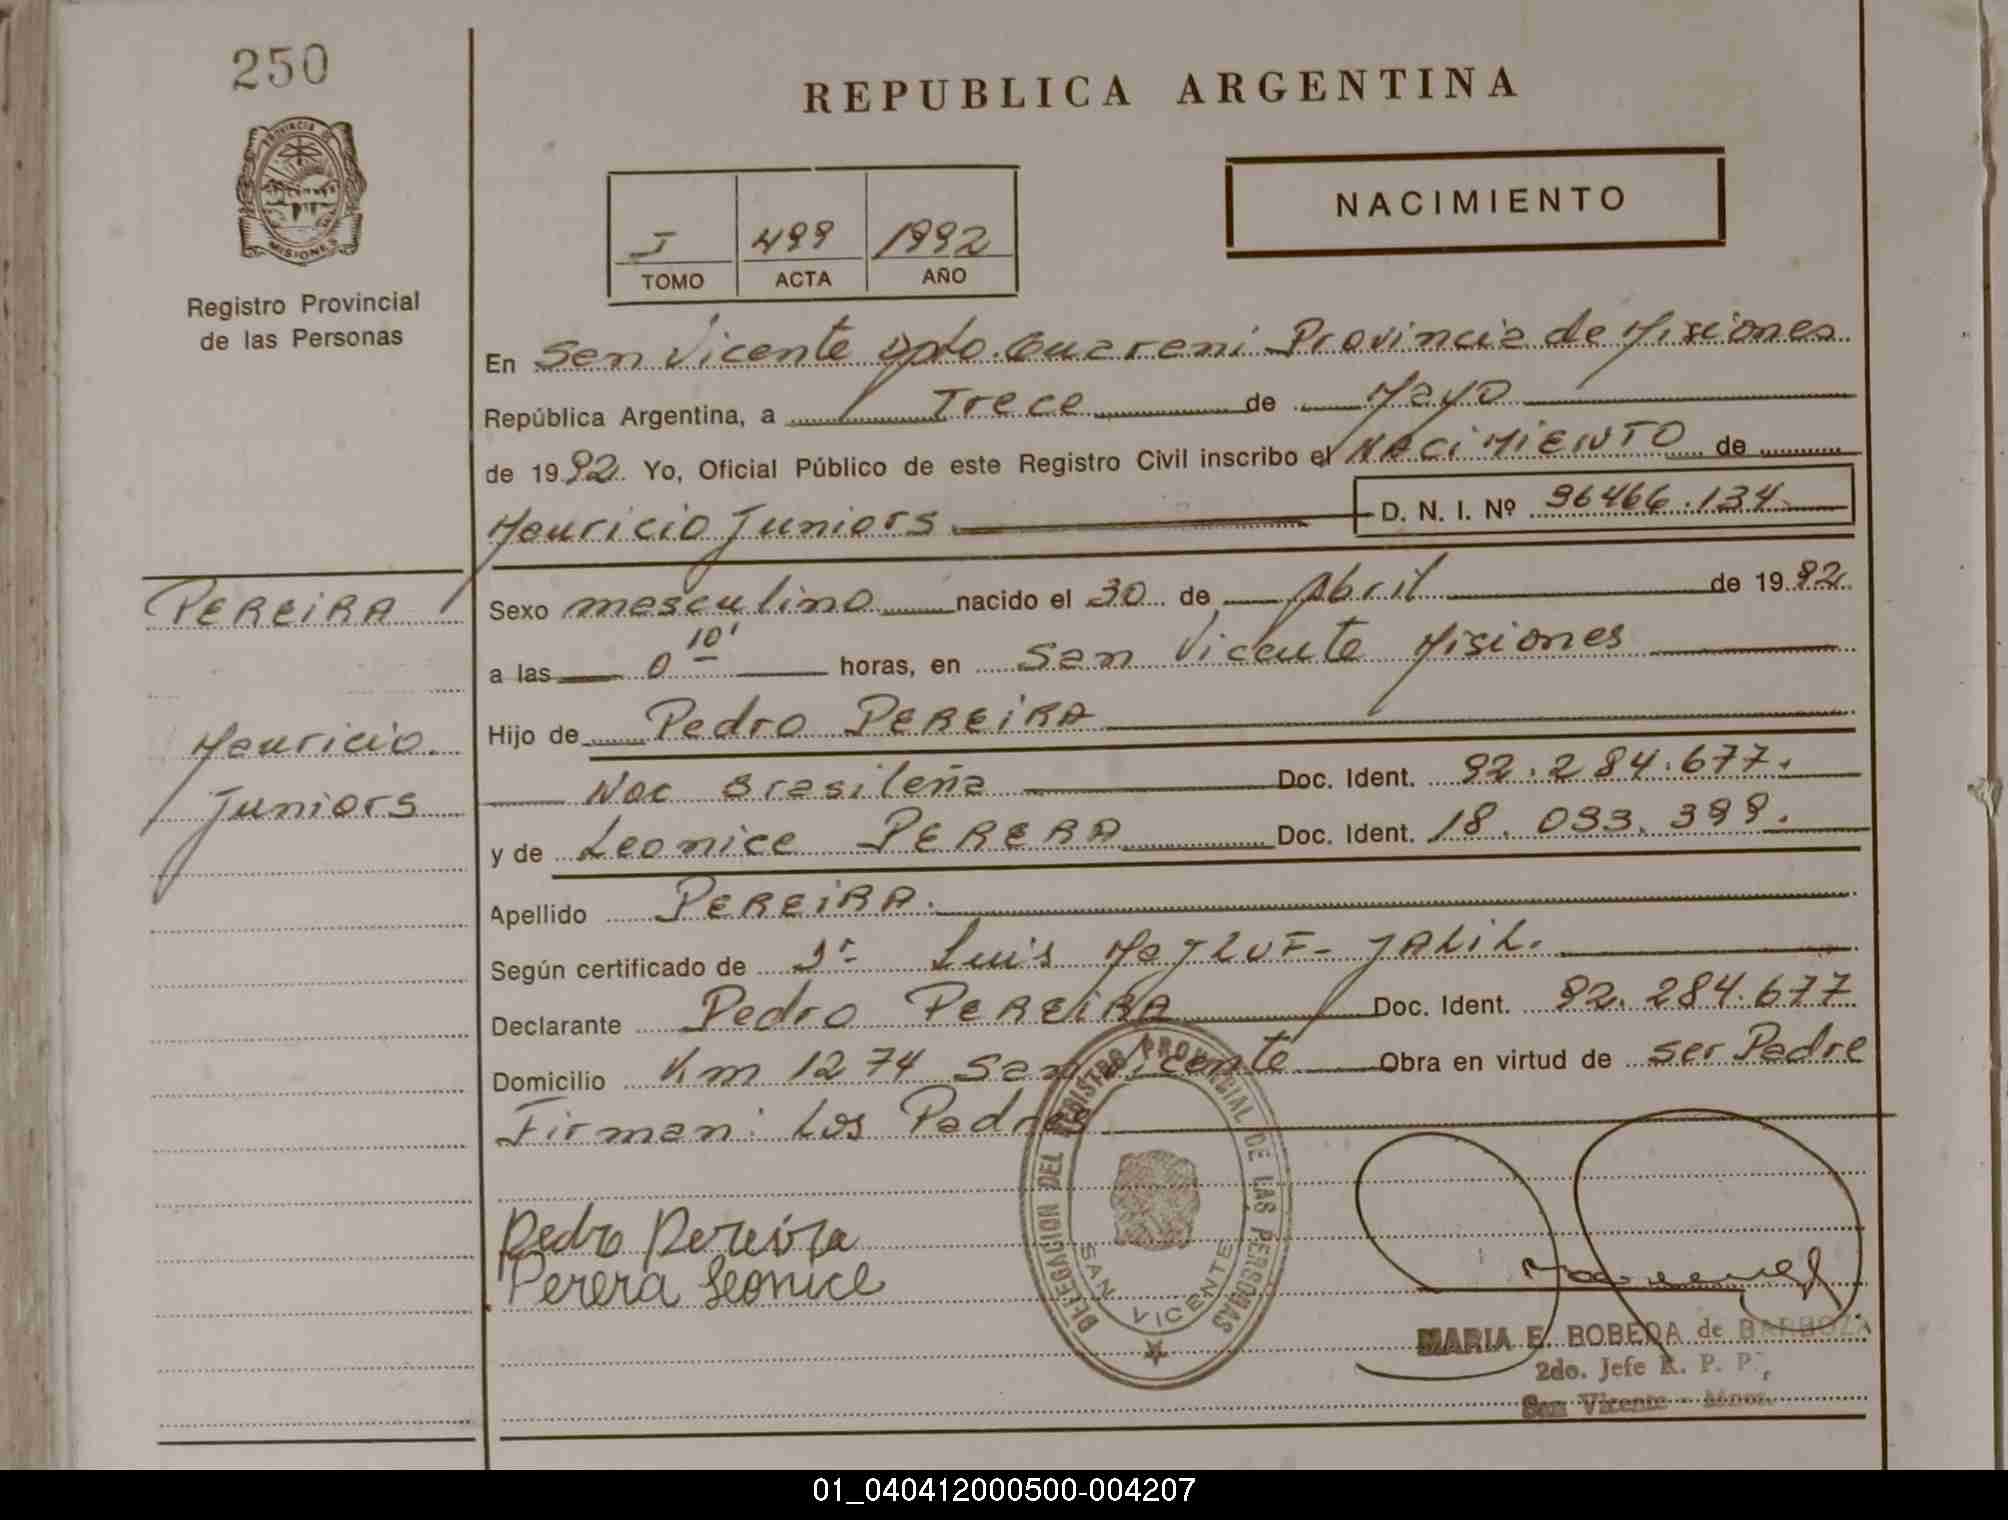 250
REPUBLICA ARGENTINA
PROVINCIA DE
MISIONES
Registro Provincial
de las Personas
NACIMIENTO
I 499 1992
TOMO ACTA AÑO
En San Vicente Dpto. Guarani Provincia de Misiones
República Argentina, a Trece de Mayo
de 1992 Yo, Oficial Público de este Registro Civil inscribo el NACIMIENTO de
Mauricio Juniors D. N. I. Nº 36466.134
PEREIRA
Mauricio
Juniors
Sexo masculino nacido el 30 de Abril de 1992
a las 0 10' horas, en San Vicente Misiones
Hijo de Pedro PEREIRA
Nac Brasileña Doc. Ident. 92.284.677.
y de Leonice PERERA Doc. Ident. 18.093.399.
Apellido PEREIRA.
Según certificado de Luis JALIL.
Declarante Pedro PEREIRA Doc. Ident. 92.284.677
Domicilio Km 1274 San Vicente Obra en virtud de ser Padre
Firman: Los Padres
Pedro Pereira
Perera Leonice
DELEGACION DEL REGISTRO PROVINCIAL DE LAS PERSONAS
SAN VICENTE
MARIA E. BOBEDA de BARBOZA
2do. Jefe R. P. P.
San Vicente - Mnes.
01_040412000500-004207